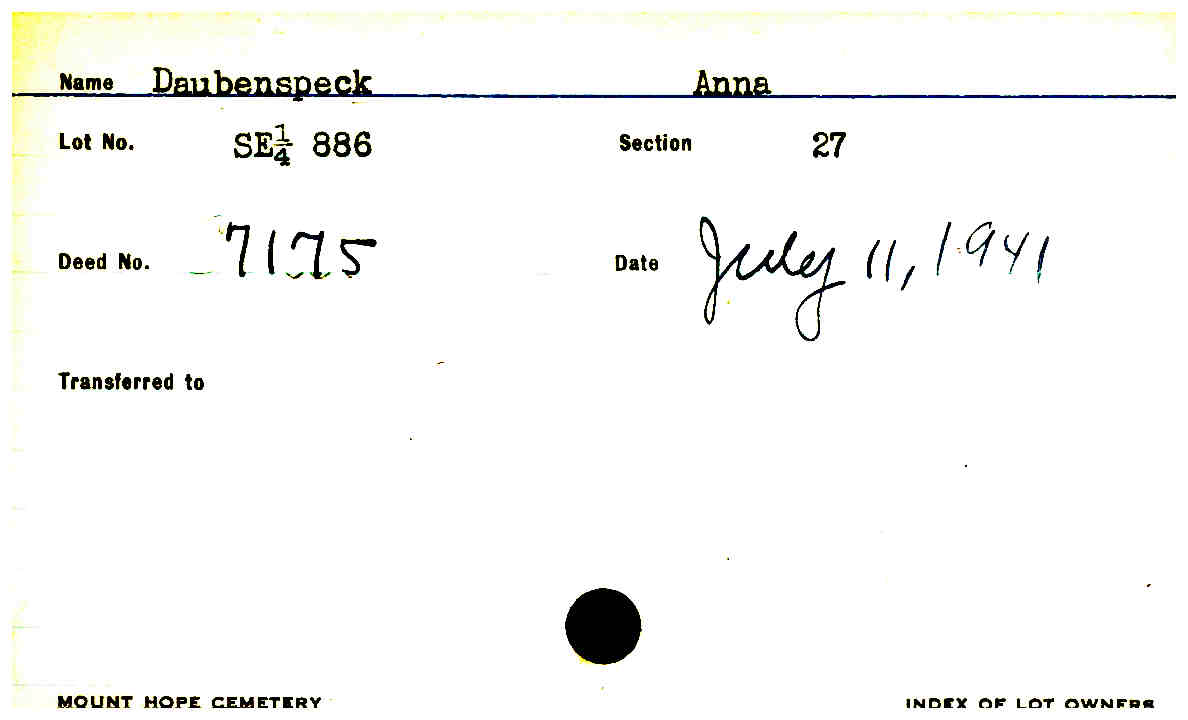 Name Daubenspeck Anna
Lot No. SE¼ 886 Section 27
Deed No. 7175 Date July 11, 1941
Transferred to
MOUNT HOPE CEMETERY INDEX OF LOT OWNERS